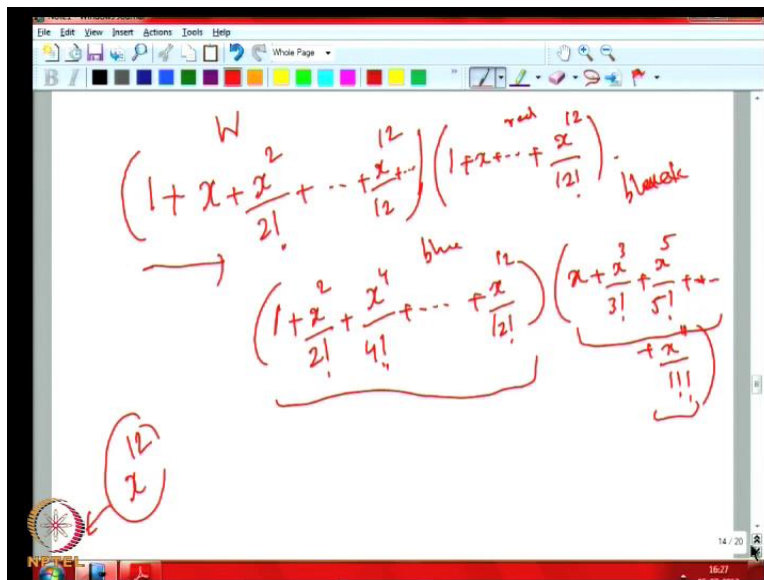 File Edit View Insert Actions Tools Help
Whole Page
B I
W
(1 + x + x^2/2! + ·· + x^12/12 + ···) (1 + x + ·· + x^12/12!) .
red
blue
(1 + x^2/2! + x^4/4! + ··· + x^12/12!) (x + x^3/3! + x^5/5! + ··
+ x^11/11!)
12
x
NPTEL
14 / 20
16:27